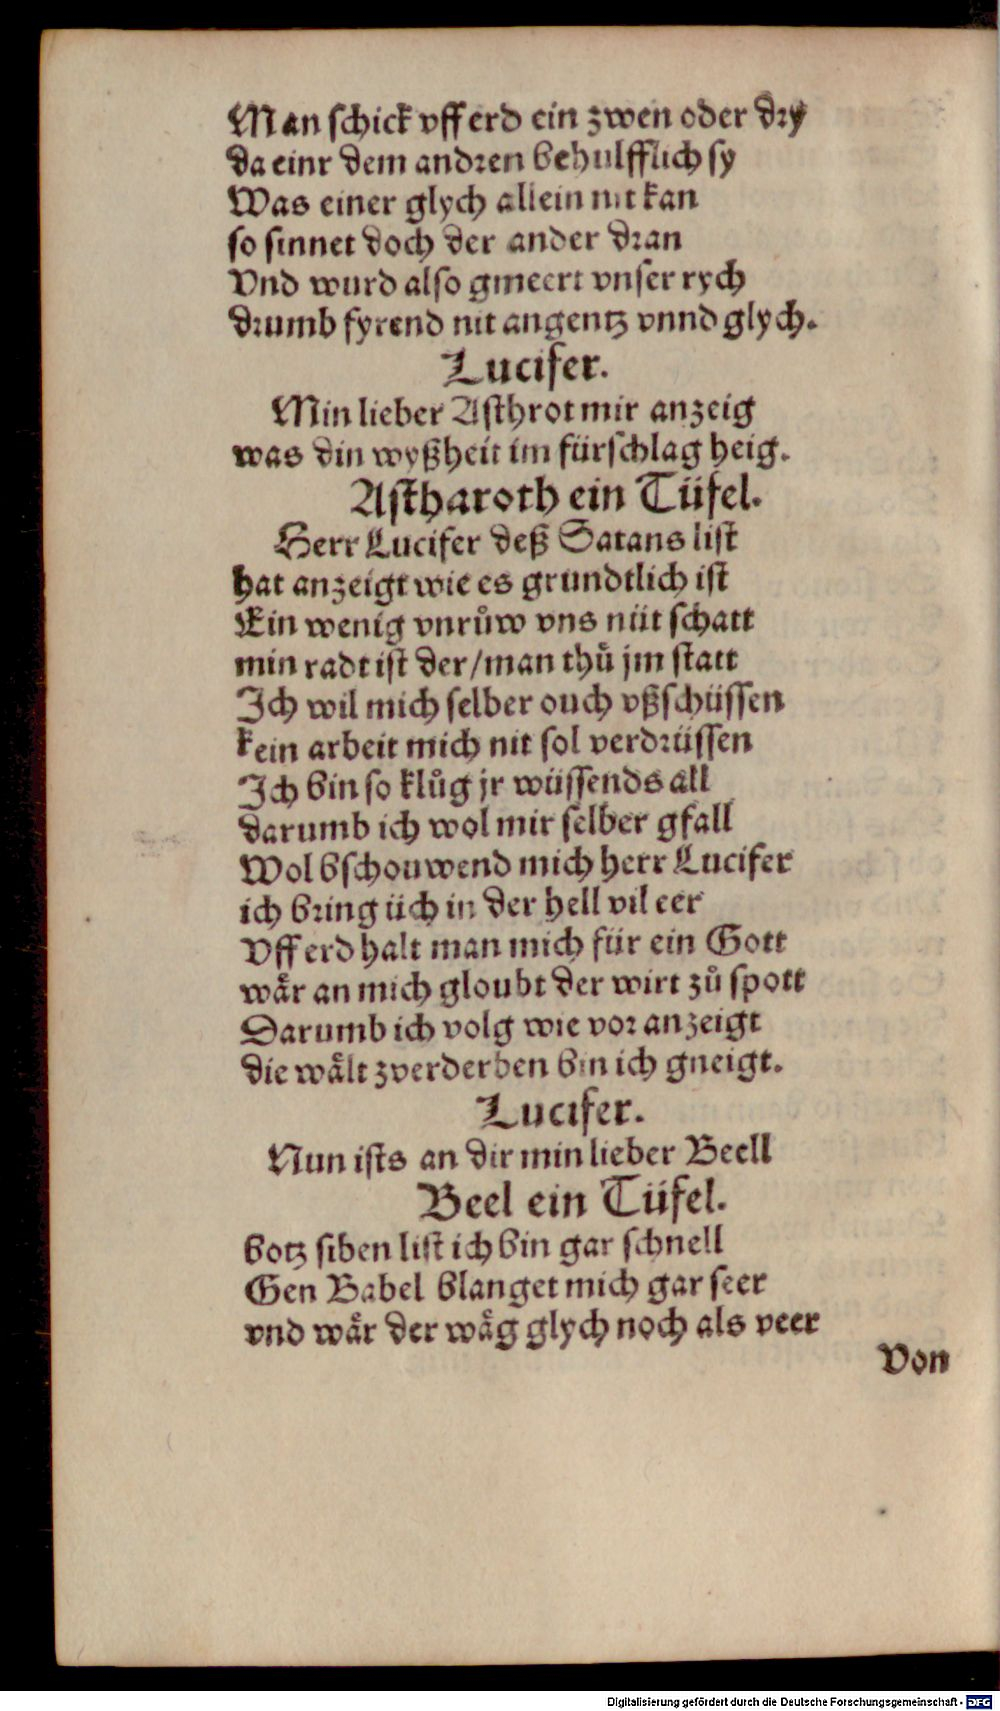 Man schick vff erd ein zwen oder dry
da einr dem andren behulfflich sy
Was einer glych allein nit kan
so sinnet doch der ander dran
Vnd wurd also gmeert vnser rych
drumb fyrend nit angentz vnnd glych.
Lucifer.
Min lieber Asthrot mir anzeig
was din wyßheit im fürschlag heig.
Astharoth ein Tüfel.
Herr Lucifer deß Satans list
hat anzeigt wie es grundtlich ist
Ein wenig vnrůw vns nüt schatt
min radt ist der/man thů jm statt
Ich wil mich selber ouch vßschüssen
kein arbeit mich nit sol verdrüssen
Ich bin so klůg jr wüssends all
darumb ich wol mir selber gfall
Wol bschouwend mich herr Lucifer
ich bring üch in der hell vil eer
Vff erd halt man mich für ein Gott
wår an mich gloubt der wirt zů spott
Darumb ich volg wie vor anzeigt
die wålt zverderben bin ich gneigt.
Lucifer.
Nun ists an dir min lieber Beell
Beel ein Tüfel.
botz siben list ich bin gar schnell
Gen Babel blanget mich gar seer
vnd wår der wåg glych noch als veer
Von
Digitalisierung gefördert durch die Deutsche Forschungsgemeinschaft - DFG